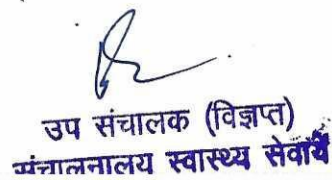 उप संचालक (विज्ञप्त)
संचालनालय स्वास्थ्य सेवायें